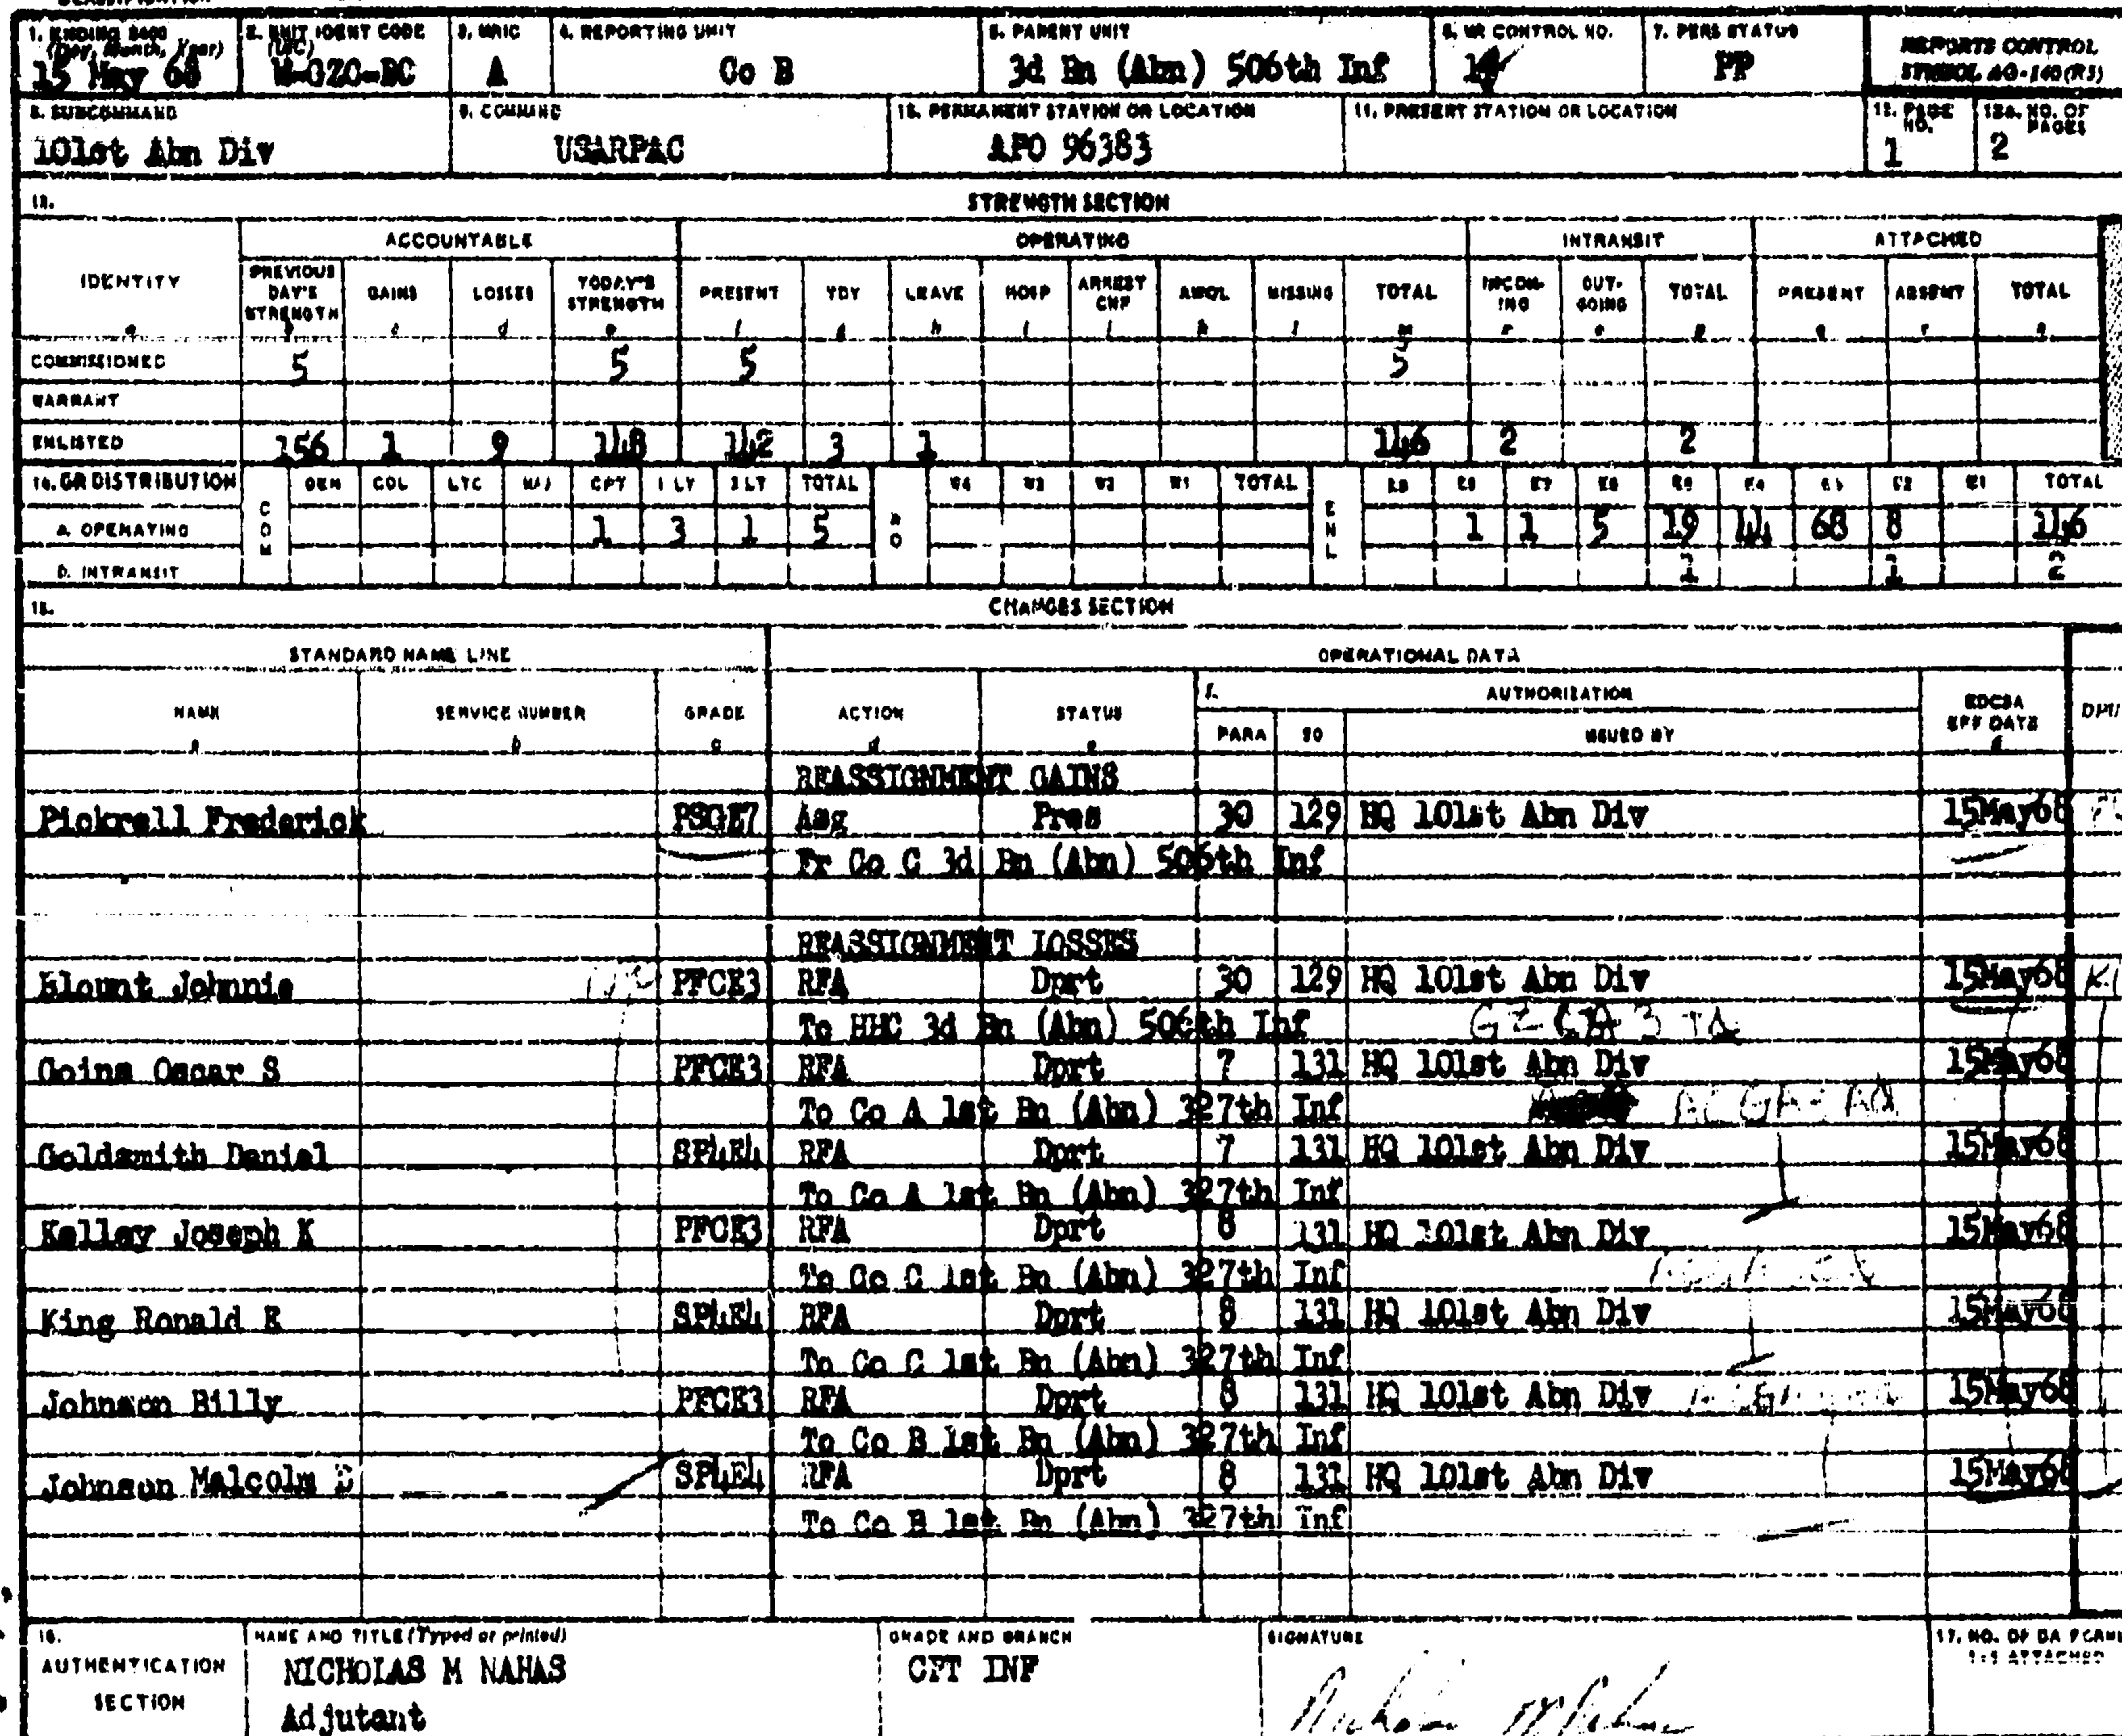 1. ENDING 2400 (Day, Month, Year) 2. UNIT IDENT CODE (UIC) 3. MRIC 4. REPORTING UNIT 5. PARENT UNIT 6. MR CONTROL NO. 7. PERS STATUS REPORTS CONTROL
15 May 68 A Co B 3d Bn (Abn) 506th Inf PP SYMBOL AG-140(R5)
8. SUBCOMMAND 9. COMMAND 10. PERMANENT STATION OR LOCATION 11. PRESENT STATION OR LOCATION 12. PAGE NO. 12a. NO. OF PAGES
101st Abn Div USARPAC APO 96383 1 2
13. STRENGTH SECTION
ACCOUNTABLE OPERATING INTRANSIT ATTACHED
IDENTITY PREVIOUS DAY'S STRENGTH GAINS LOSSES TODAY'S STRENGTH PRESENT TDY LEAVE HOSP ARREST CNF AWOL MISSING TOTAL INCOMING OUTGOING TOTAL PRESENT ABSENT TOTAL
COMMISSIONED 5 5 5 5
WARRANT
ENLISTED 156 1 9 148 142 3 1 146 2 2
14. GR DISTRIBUTION COM GEN COL LTC MAJ CPT 1 LT 2 LT TOTAL WO W4 W3 W2 W1 TOTAL ENL E9 E8 E7 E6 E5 E4 E3 E2 E1 TOTAL
A. OPERATING 1 3 1 5 1 1 5 19 44 68 8 146
B. INTRANSIT 1 1 2
15. CHANGES SECTION
STANDARD NAME LINE OPERATIONAL DATA
NAME SERVICE NUMBER GRADE ACTION STATUS f. AUTHORIZATION EDCSA EFF DATE
a b c d e PARA SO ISSUED BY
REASSIGNMENT GAINS
Pickrell Frederick PSGE7 Asg Pres 30 129 HQ 101st Abn Div 15May68
Fr Co C 3d Bn (Abn) 506th Inf
REASSIGNMENT LOSSES
Blount Johnnie PFCE3 RFA Dprt 30 129 HQ 101st Abn Div 15May68
To HHC 3d Bn (Abn) 506th Inf
Goins Oscar S PFCE3 RFA Dprt 7 131 HQ 101st Abn Div 15May68
To Co A 1st Bn (Abn) 327th Inf
Goldsmith Daniel SP4E4 RFA Dprt 7 131 HQ 101st Abn Div 15May68
To Co A 1st Bn (Abn) 327th Inf
Kelley Joseph K PFCE3 RFA Dprt 8 131 HQ 101st Abn Div 15May68
To Co C 1st Bn (Abn) 327th Inf
King Ronald E SP4E4 RFA Dprt 8 131 HQ 101st Abn Div 15May68
To Co C 1st Bn (Abn) 327th Inf
Johnson Billy PFCE3 RFA Dprt 8 131 HQ 101st Abn Div 15May68
To Co B 1st Bn (Abn) 327th Inf
Johnson Malcolm SP4E4 RFA Dprt 8 131 HQ 101st Abn Div 15May68
To Co B 1st Bn (Abn) 327th Inf
16. AUTHENTICATION SECTION NAME AND TITLE (Typed or printed) GRADE AND BRANCH SIGNATURE 17. NO. OF DA FORM ATTACHED
NICHOLAS M NAHAS CPT INF
Adjutant